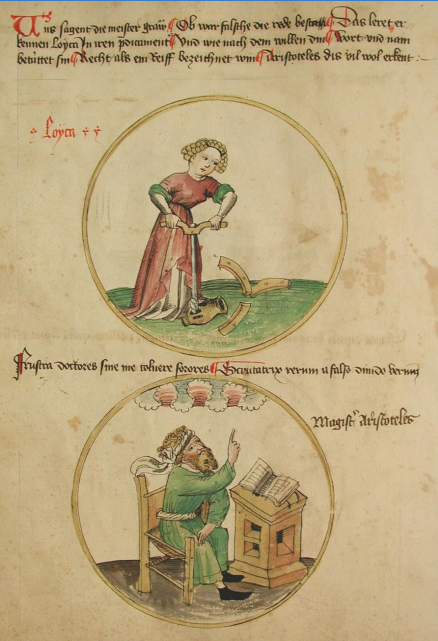 Uns sagent die meister gray Ob war falsche die rede bestay Das leret er
kennen Loyca In iren pdicament Und wie nach dem willen din Wort vnd nam
betüttet sin Recht als ein Reiff bezeichnet win Aristoteles dis vil wol erkent
Loyca
Frustra doctores sine me coluere sorores Scrutatrix verum a falso diuido verum
Magistr Aristoteles